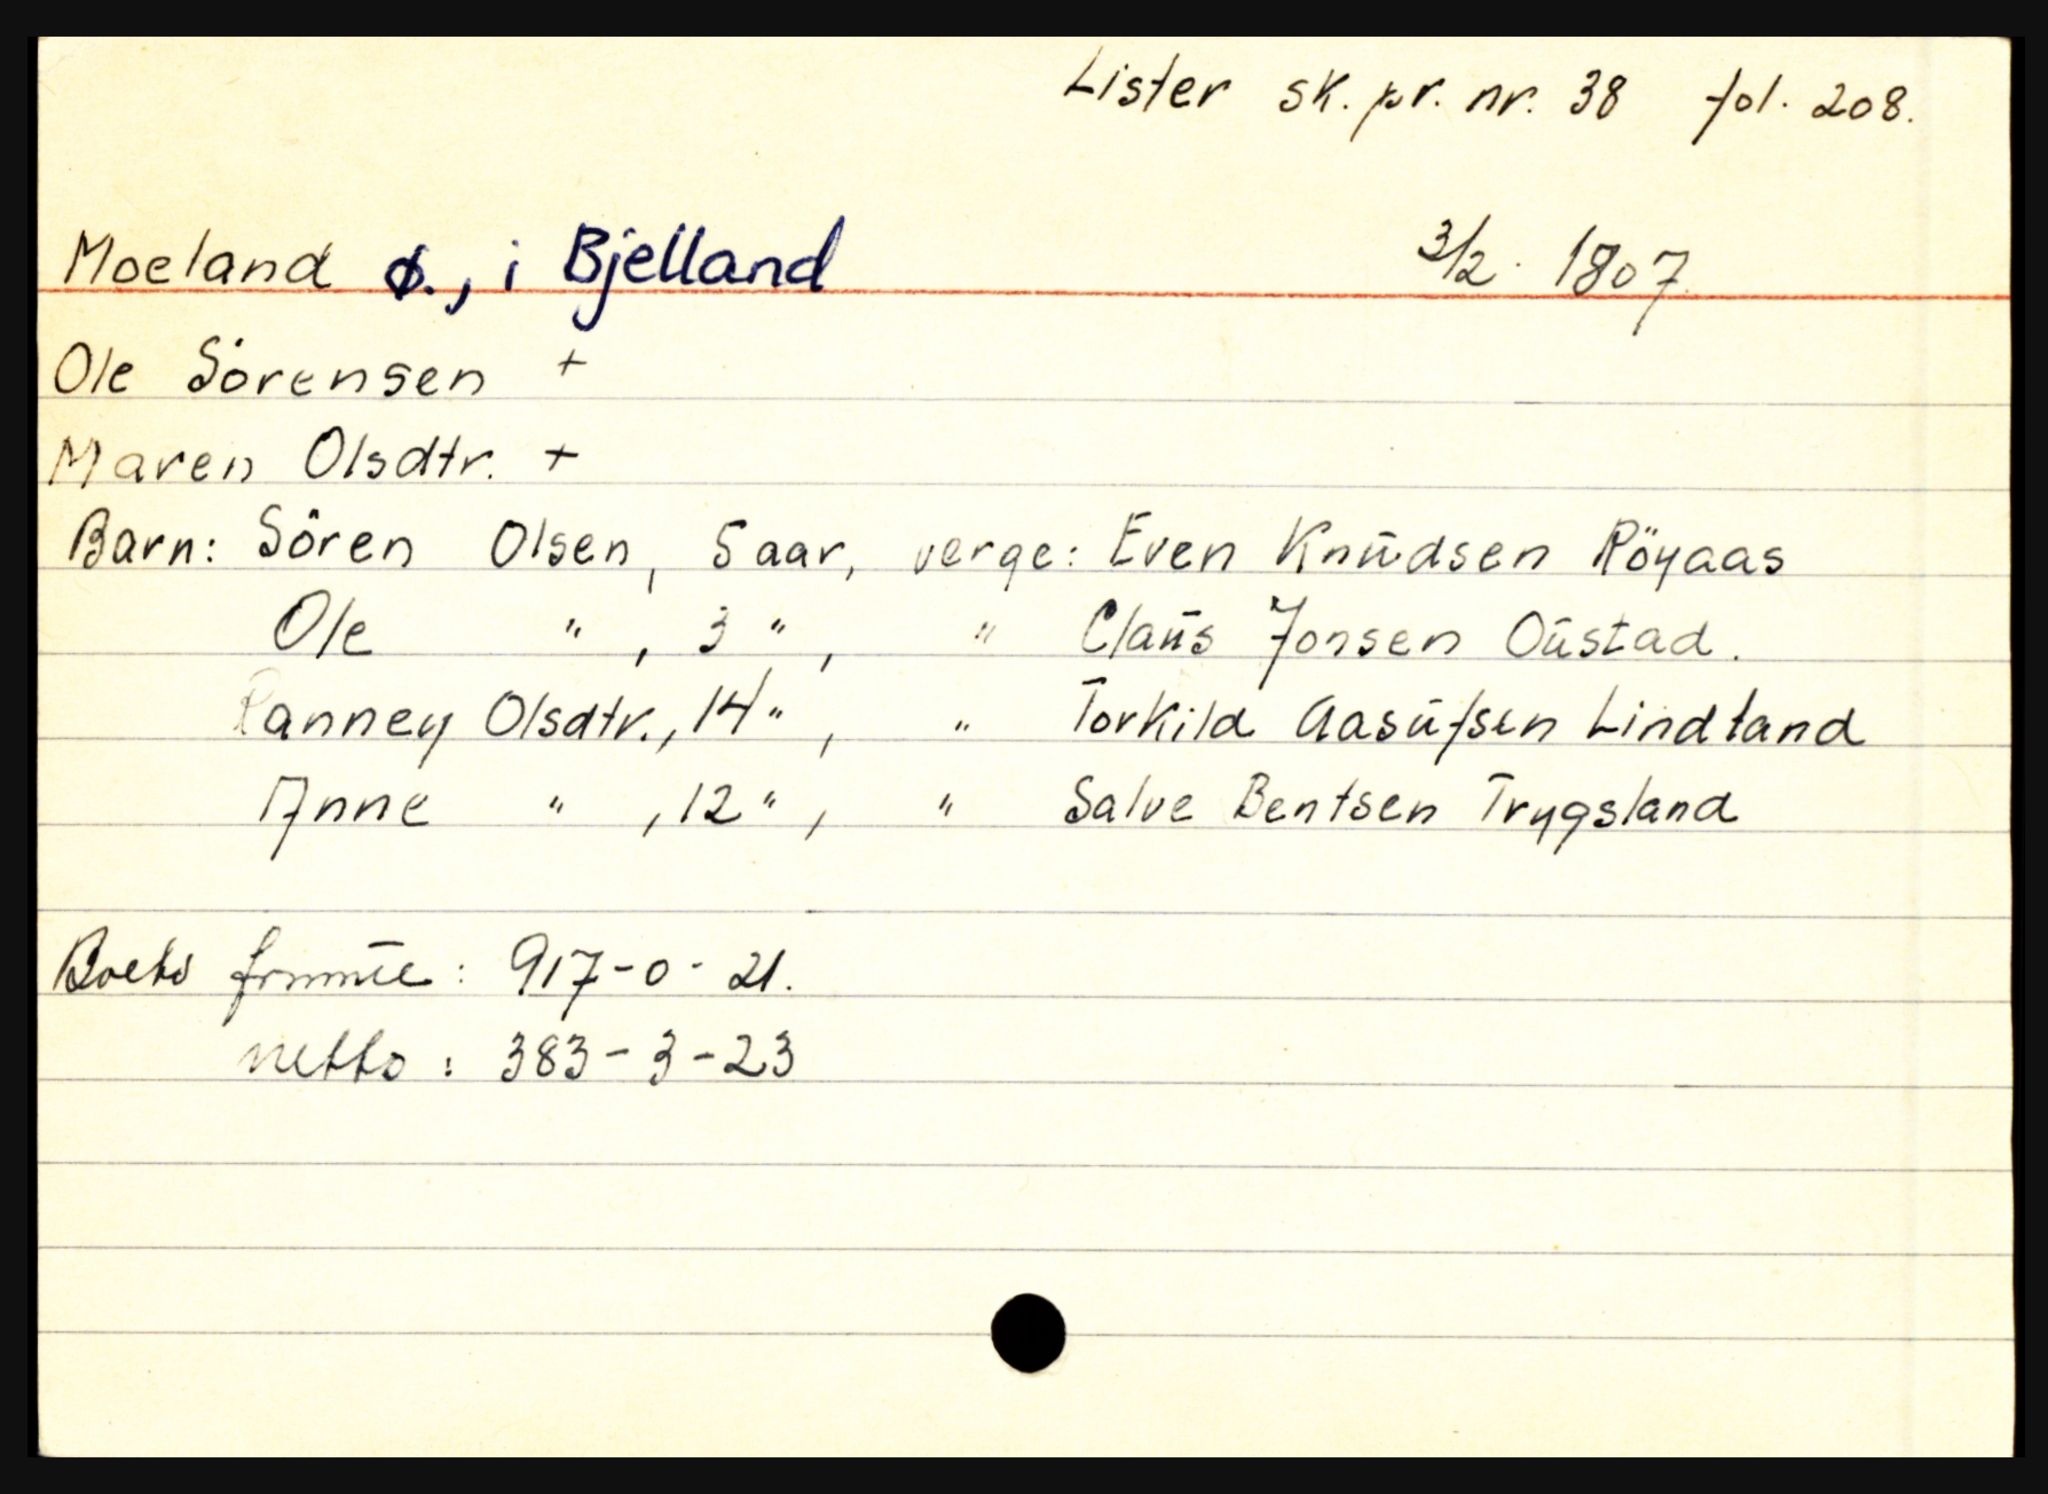 Lister sk. pr. nr. 38 fol. 208.
Moeland ø., i Bjelland 3/2. 1807
Ole Sörensen +
Maren Olsdtr. +
Barn: Sören Olsen, 5 aar, verge: Even Knudsen Röyaas
Ole " , 3 " , " Claus Jonsen Oustad.
Ranney Olsdtr., 14 " , " Torkild Aasufsen Lindland
Anne " , 12 " , " Salve Bentsen Trygsland
Boets : 917-0-21.
netto : 383-3-23